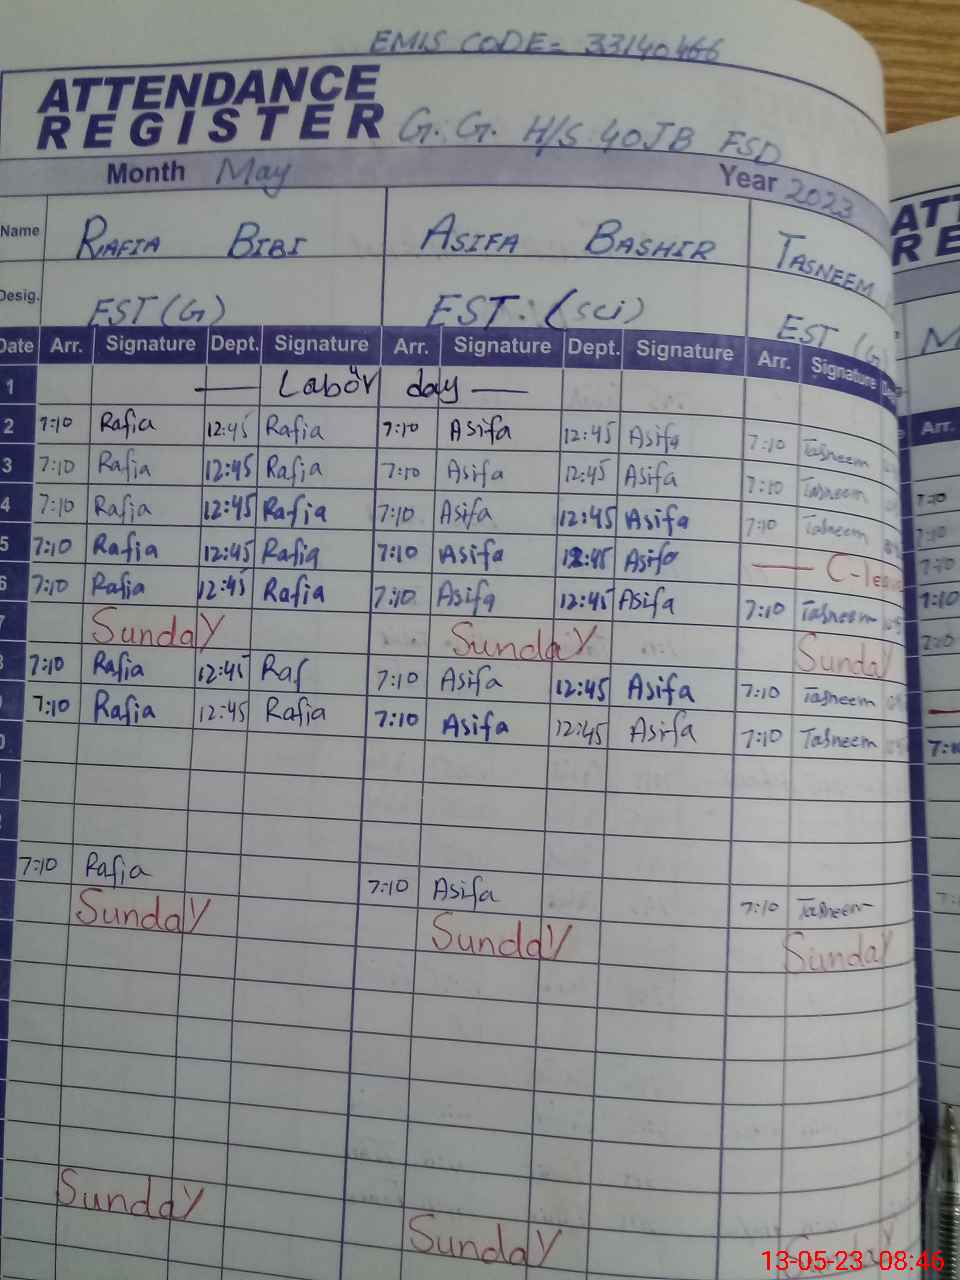 EMIS CODE= 33140466
ATTENDANCE
REGISTER G.G. H/S 40JB FSD
Month May Year 2023
Name RAFIA BIBI ASIFA BASHIR TASNEEM
Desig. EST (G) EST: (Sci) EST (G)
Date Arr. Signature Dept. Signature Arr. Signature Dept. Signature Arr. Signature
1 Labour day
2 7:10 Rafia 12:45 Rafia 7:10 Asifa 12:45 Asifa 7:10 Tasneem
3 7:10 Rafia 12:45 Rafia 7:10 Asifa 12:45 Asifa 7:10 Tasneem
4 7:10 Rafia 12:45 Rafia 7:10 Asifa 12:45 Asifa 7:10 Tasneem
5 7:10 Rafia 12:45 Rafia 7:10 Asifa 12:45 Asifa C-leave
6 7:10 Rafia 12:45 Rafia 7:10 Asifa 12:45 Asifa 7:10 Tasneem
Sunday Sunday Sunday
7:10 Rafia 12:45 Raf 7:10 Asifa 12:45 Asifa 7:10 Tasneem
7:10 Rafia 12:45 Rafia 7:10 Asifa 12:45 Asifa 7:10 Tasneem
7:10 Rafia 7:10 Asifa 7:10 Tasneem
Sunday Sunday Sunday
Sunday Sunday Sunday
ATT
RE
M
Arr.
7:10
7:10
7:10
7:10
7:10
13-05-23 08:46